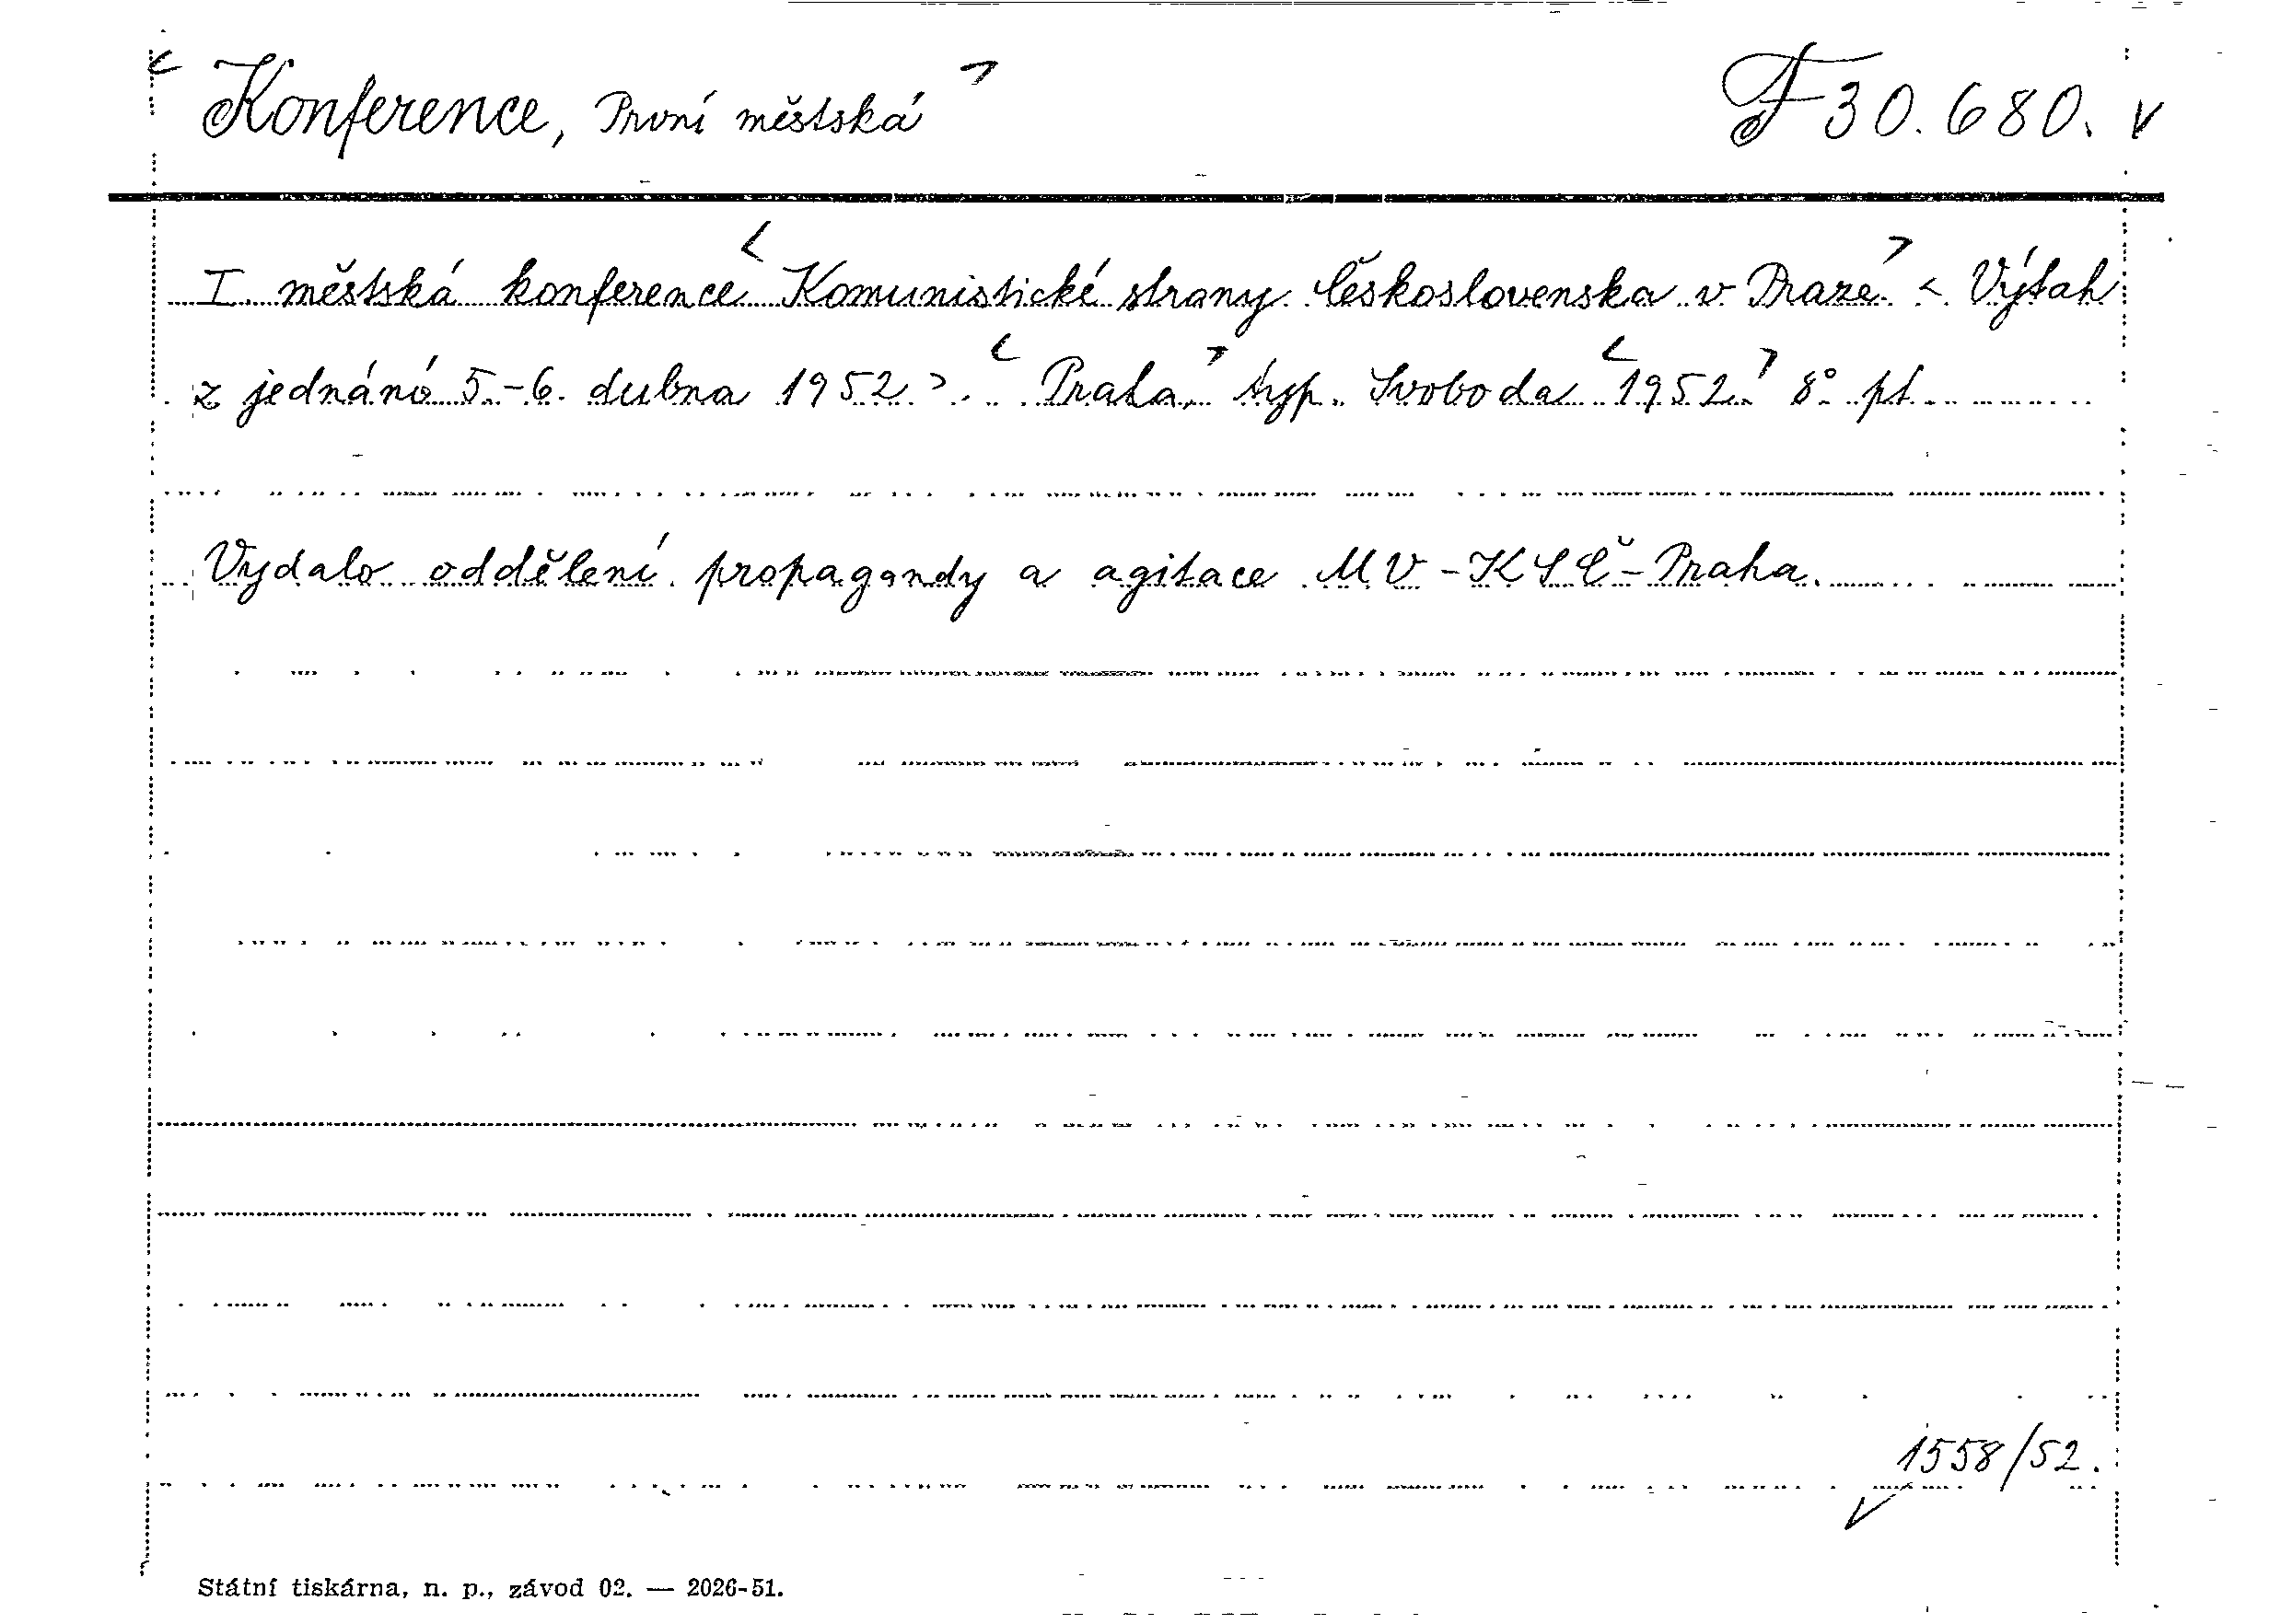 < Konference, První městská > F 30.680. v
I. městská konference < Komunistické strany Československa v Praze > < Výtah
z jednání 5.-6. dubna 1952 > . < Praha, > typ. Svoboda < 1952. > 8° pt.
Vydalo oddělení propagandy a agitace MV-KSČ-Praha.
1558/52.
Státní tiskárna, n. p., závod 02. — 2026-51.